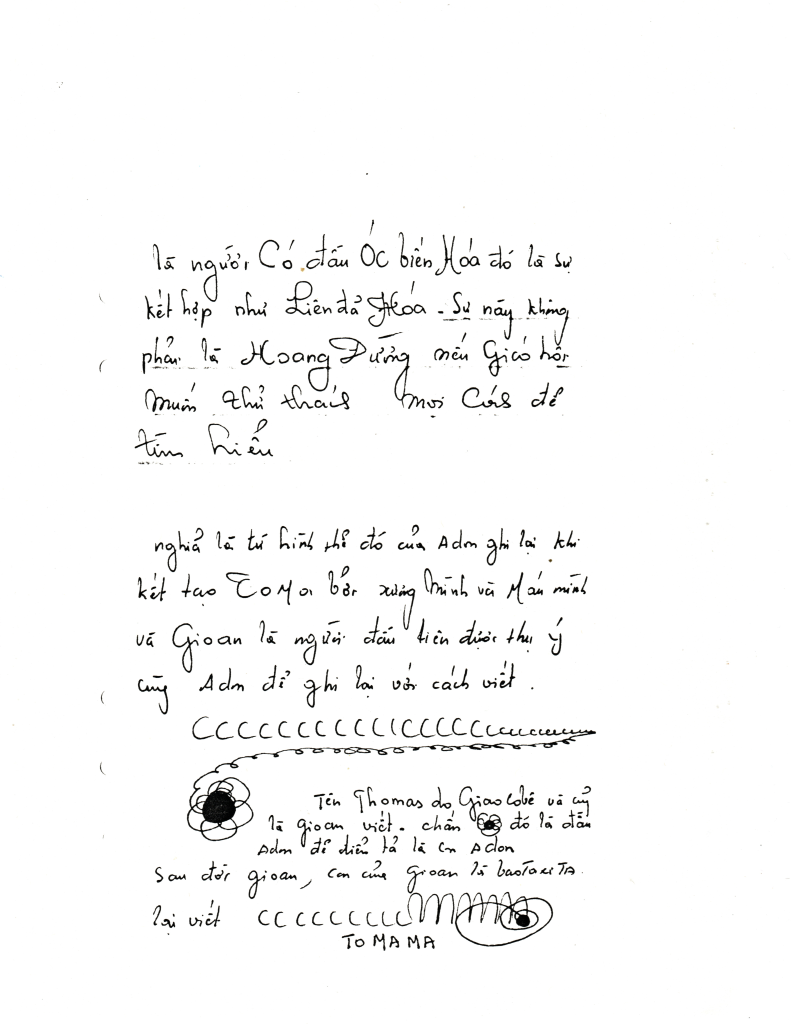 là người Có đầu Óc biến Hóa đó là sự
kết hợp như Liên đả Hóa - Sự này không
phải là Hoang Đường nếu Giáo hội
muốn thử thách mọi Cách để
tìm hiểu
nghiã là từ hình thể đó của Adn ghi lại khi
kết tạo ToMa bởi xương Mình và Máu mình
và Gioan là người đầu tiên được thụ ý
cùng Adn để ghi lại với cách viết.
CCCCCCCCCCCCCCCC
Tên Thomas do Giacôbê và cũng
là gioan viết. chấn đó là dấu
Adn để diển tả là Con Adon
Sau đời gioan, con của gioan là
lại viết CCCCCCCCC
TO MA MA